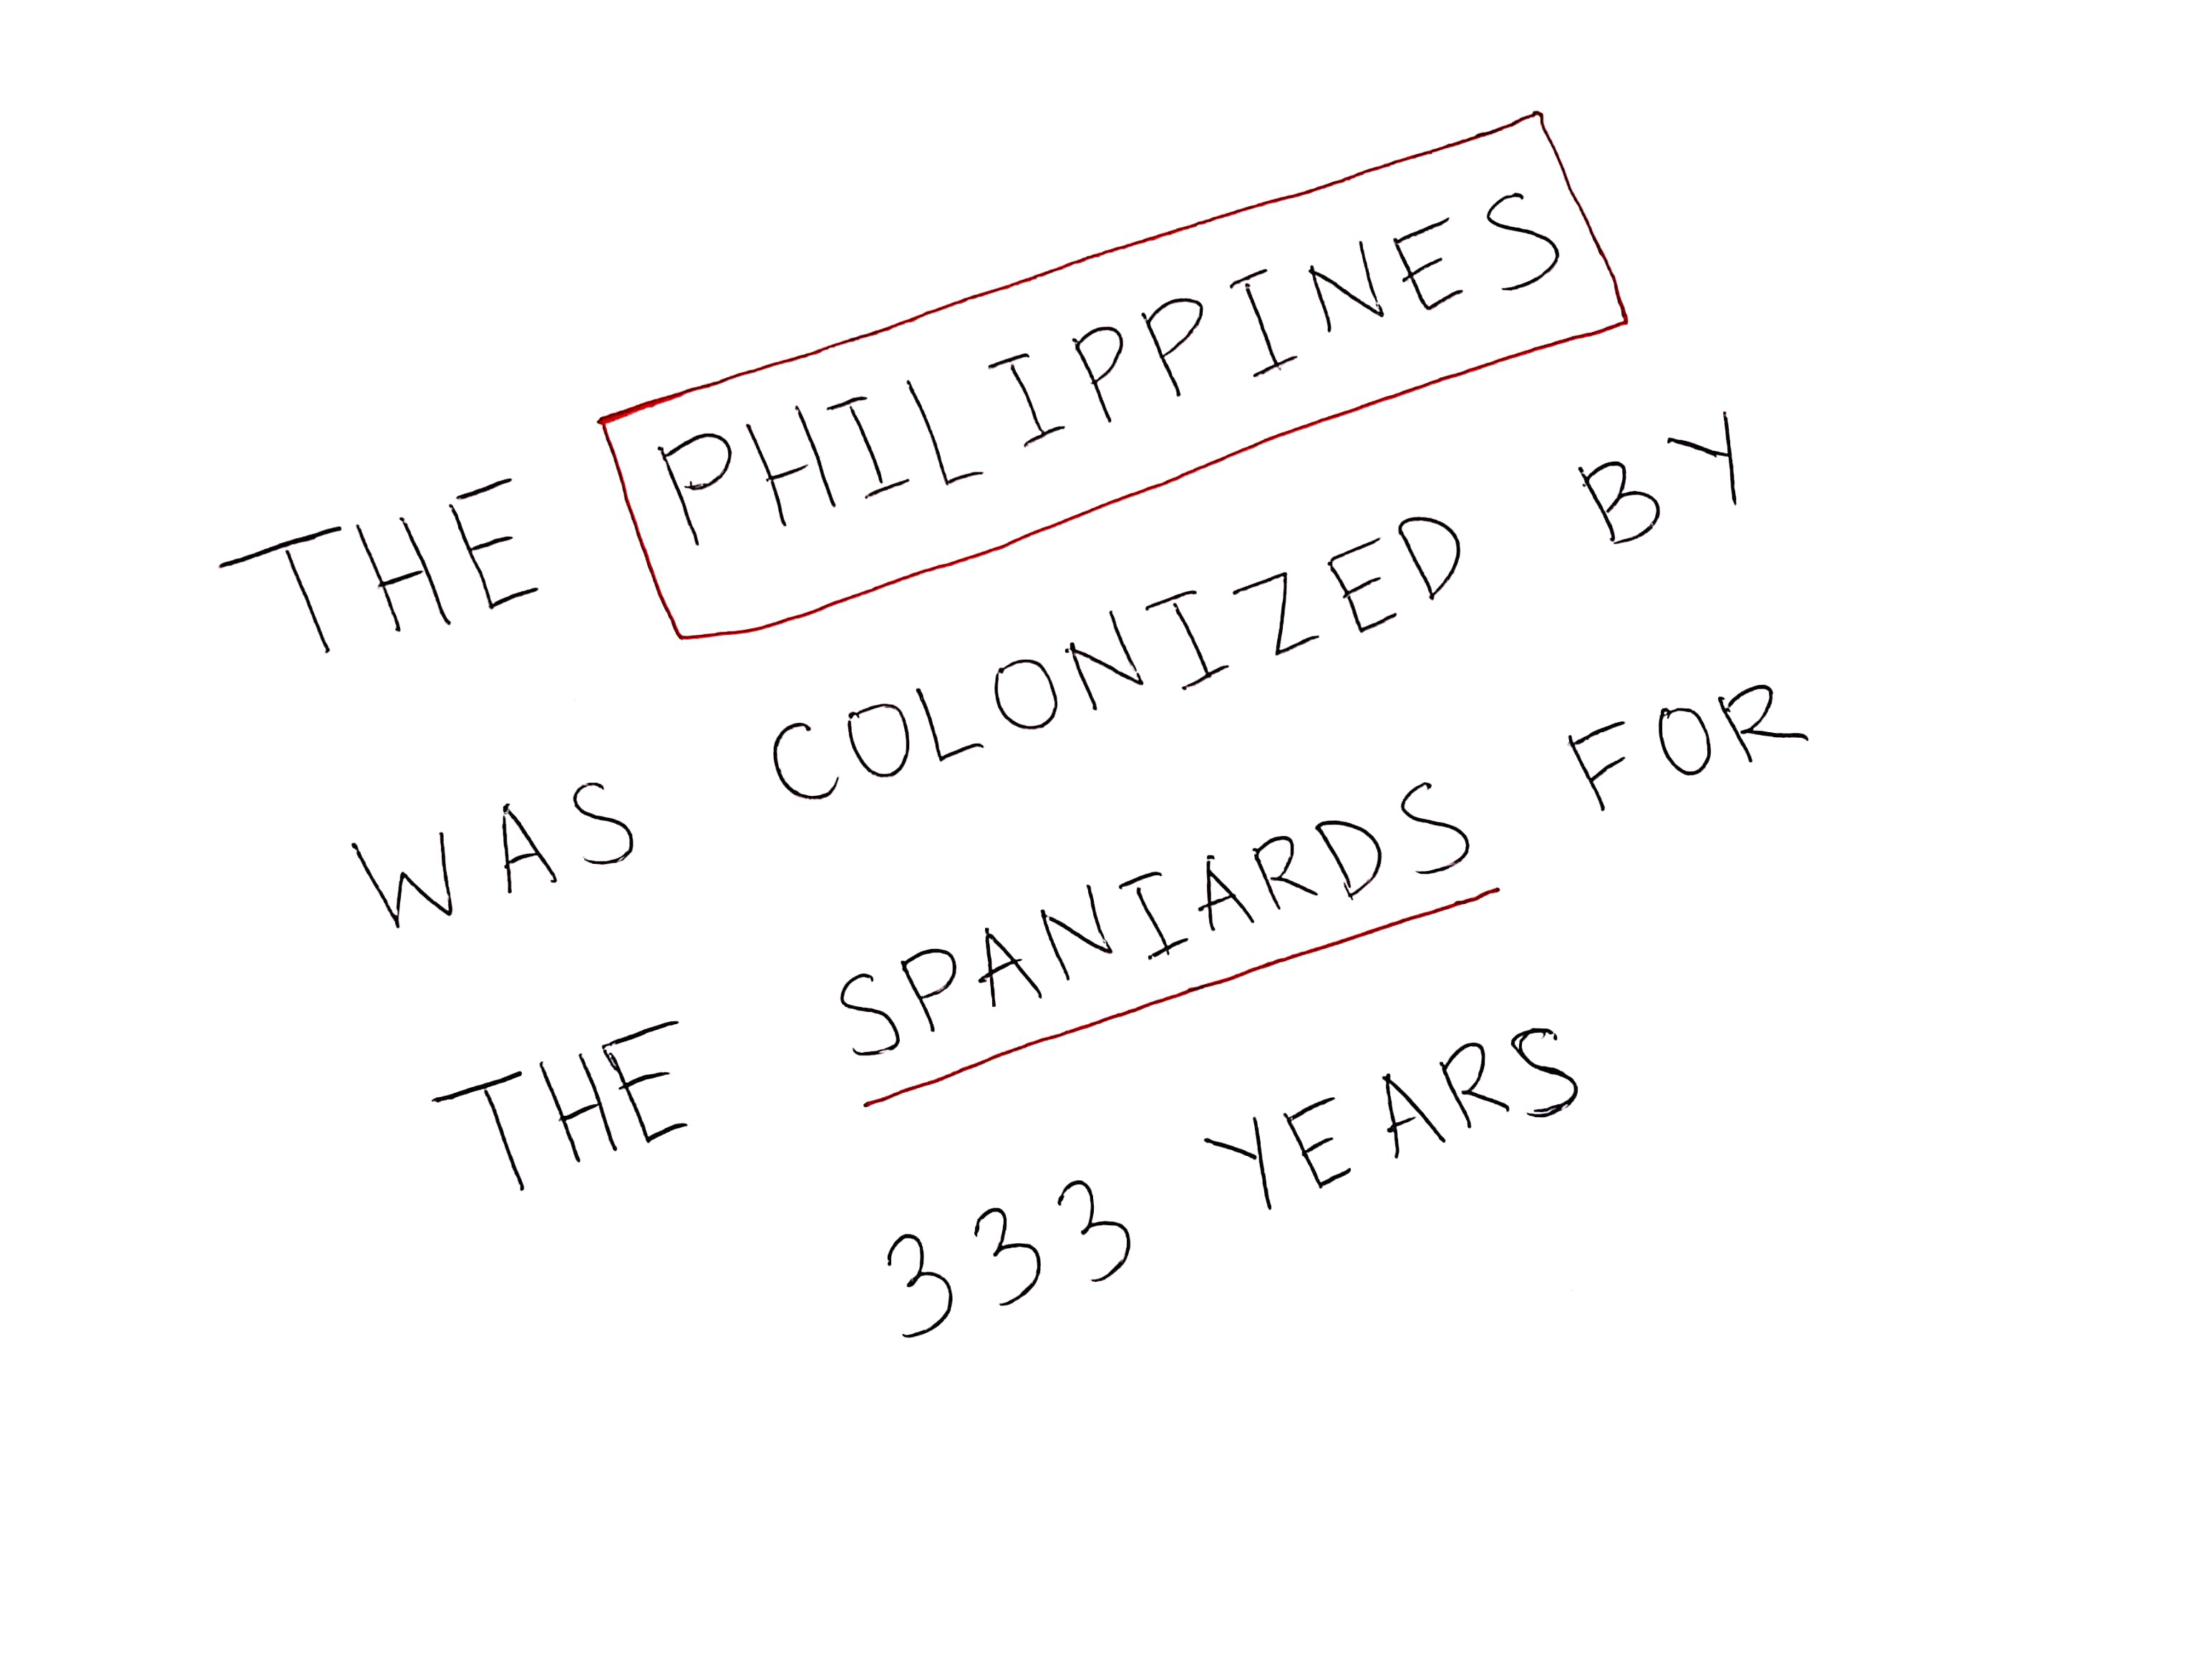 THE PHILIPPINES
WAS COLONIZED BY
THE SPANIARDS FOR
333 YEARS